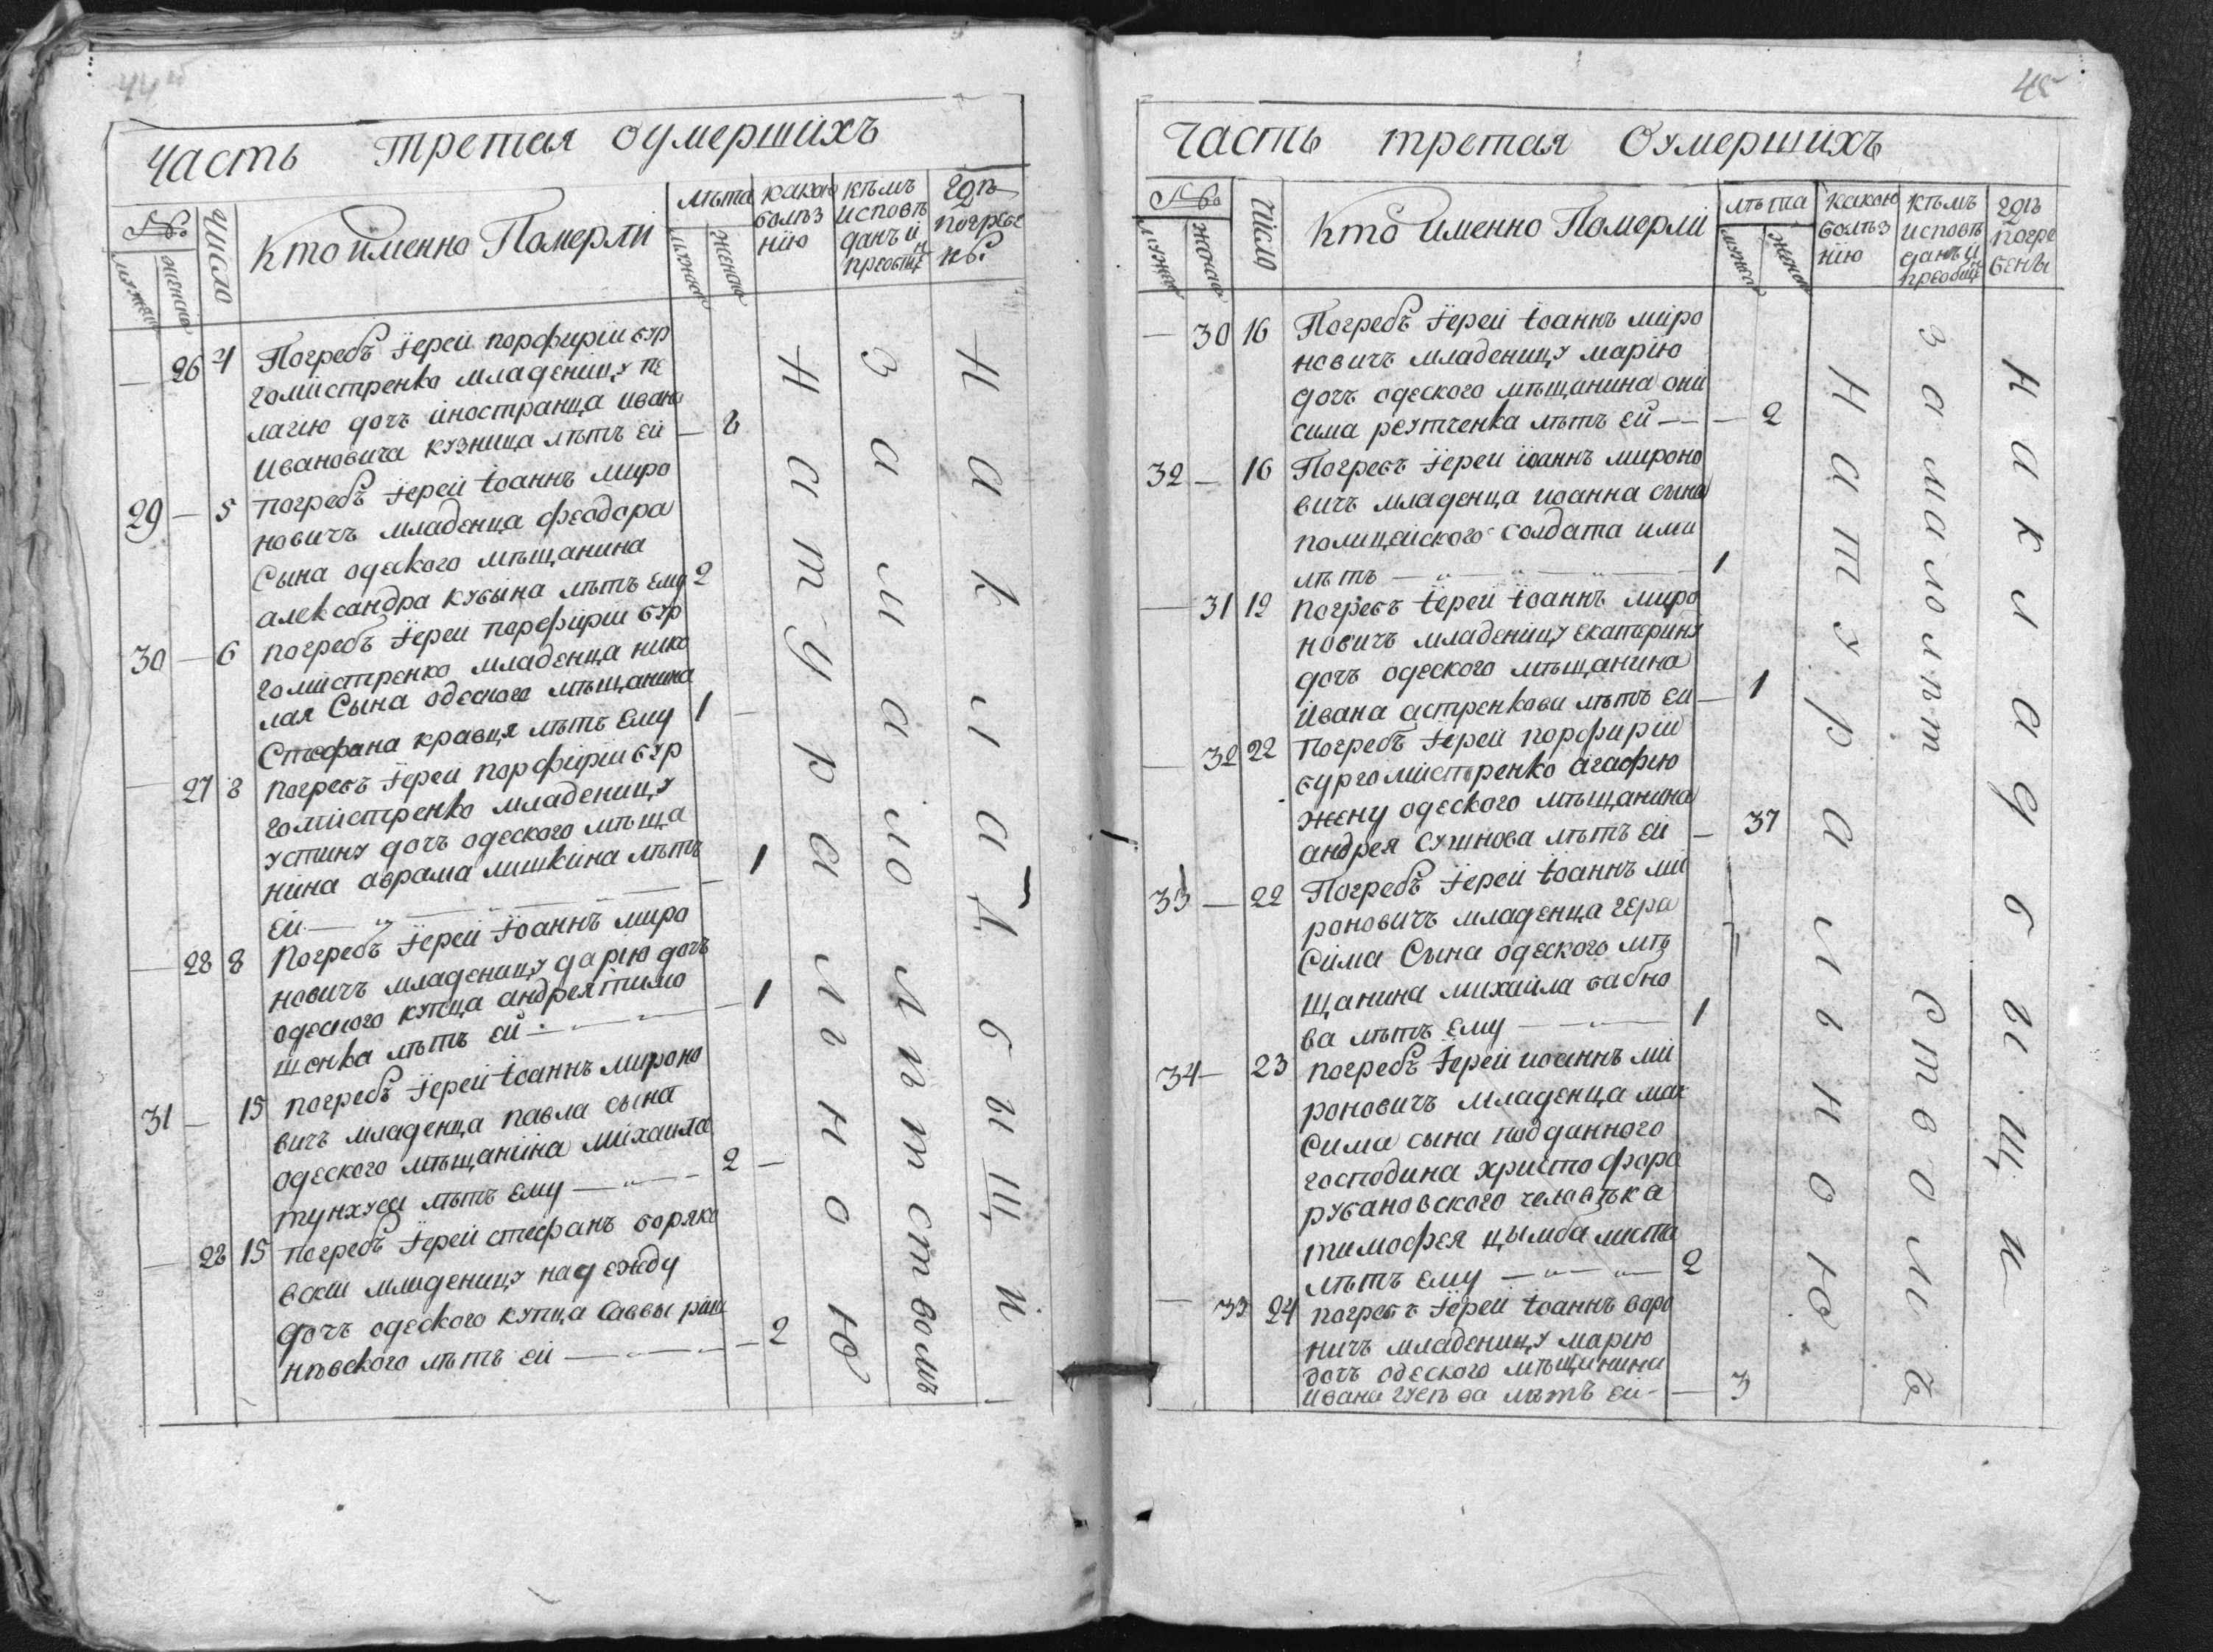 Часть третая оумершихъ
№:
мужеск
женска
число
Кто именно Померли
лѣта
мужеск
женска
какою
болѣз
нію
кѣмъ
исповѣ
данъ и
преобщ
гдѣ
погребе
ны
26 4 Погребъ Іерей порфирій бур
гомистренко младеницу пе
лагію дочь иностранца ивана
ивановича кузница лѣтъ ей —
29 — 5 погребъ Іерей Іоаннъ миро
новичъ младенца феодора
Сына одеского мѣщанина
александра кубина лѣтъ ему 2
30 — 6 погребъ Іерей порфирій бур
гомистренко младенца нико
лая Сына одеского мѣщанина
Стефана кравця лѣтъ Ему 1 —
— 27 8 погребъ Іерей порфирій бур
гомистренко младеницу
устину дочъ одеского мѣща
нина аврама мишкина лѣтъ
ей — „ — — 1
— 28 8 Погребъ Іерей Іоаннъ миро
новичъ младеницу дарію дочъ
одеского купца андрея тимо
шенка лѣтъ ей — — 1
31 — 15 погребъ Іерей Іоаннъ мироно
вичъ младенца павла сына
одеского мѣщанина михаила
лѣтъ ему — „ — 2 —
— 28 15 погребъ Іерей стефанъ боряко
вскій младеницу надежду
Дочъ одеского купца Саввы
лѣтъ ей — — 2
Натуральною
за малолѣтствомъ
На кладбищи
45
Часть третая Оумершихъ
№:
мужеск
женска
Число
Кто Именно Померли
лѣта
мужеск
женска
какою
болѣз
нію
кѣмъ
исповѣ
данъ и
преобще
гдѣ
погре
бены
— 30 16 Погребъ Іерей Іоаннъ миро
новичъ младеницу марію
дочъ одеского мѣщанина они
сима реутченка лѣтъ ей — — 2
32 — 16 Погребъ Іерей іоаннъ мироно
вичъ младенца иоанна сына
полицейского Солдата
лѣтъ — „ — „ — „ — 1
— 31 19 погребъ Іерей Іоаннъ миро
новичъ младеницу екатерину
дочъ одеского мѣщанина
ивана астренкова лѣтъ ей — 1
— 32 22 погребъ Іерей порфирій
бургомистренко агафію
жену одеского мѣщанина
андрея сушнова лѣтъ ей — 37
33 — 22 Погребъ Іерей Іоаннъ ми
роновичъ младенца гера
Сима Сына одеского мѣ
щанина михайла бабно
ва лѣтъ ему — „ — 1
34 — 23 погребъ Іерей иоаннъ ми
роновичъ младенца мак
Сима сына подданного
господина христофора
рубановского человѣка
тимофея цымбалиста
лѣтъ ему — „ — „ — 2
— 33 24 погребъ Іерей Іоаннъ воро
ничъ младеницу марію
дочъ одеского мѣщанина
ивана гусева лѣтъ ей — — 3
Натуральною
за малолѣт
ствомъ
на кладбищи